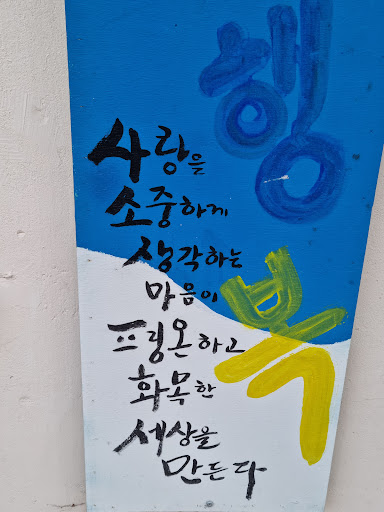 행
복
사랑을
소중하게
생각하는
마음이
평온하고
화목한
세상을
만든다